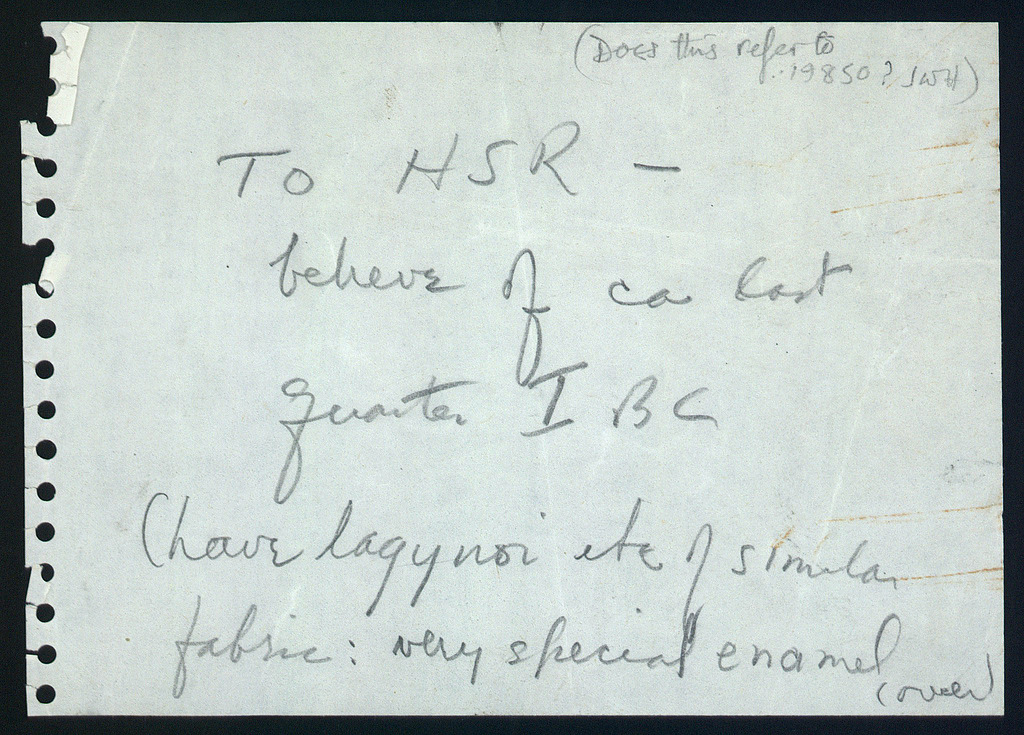 (Does this refer to
..19850? JWH)
To HSR —
believe of ca last
quarter I BC
(have lagynoi etc of similar
fabric: very special enamel
(over)